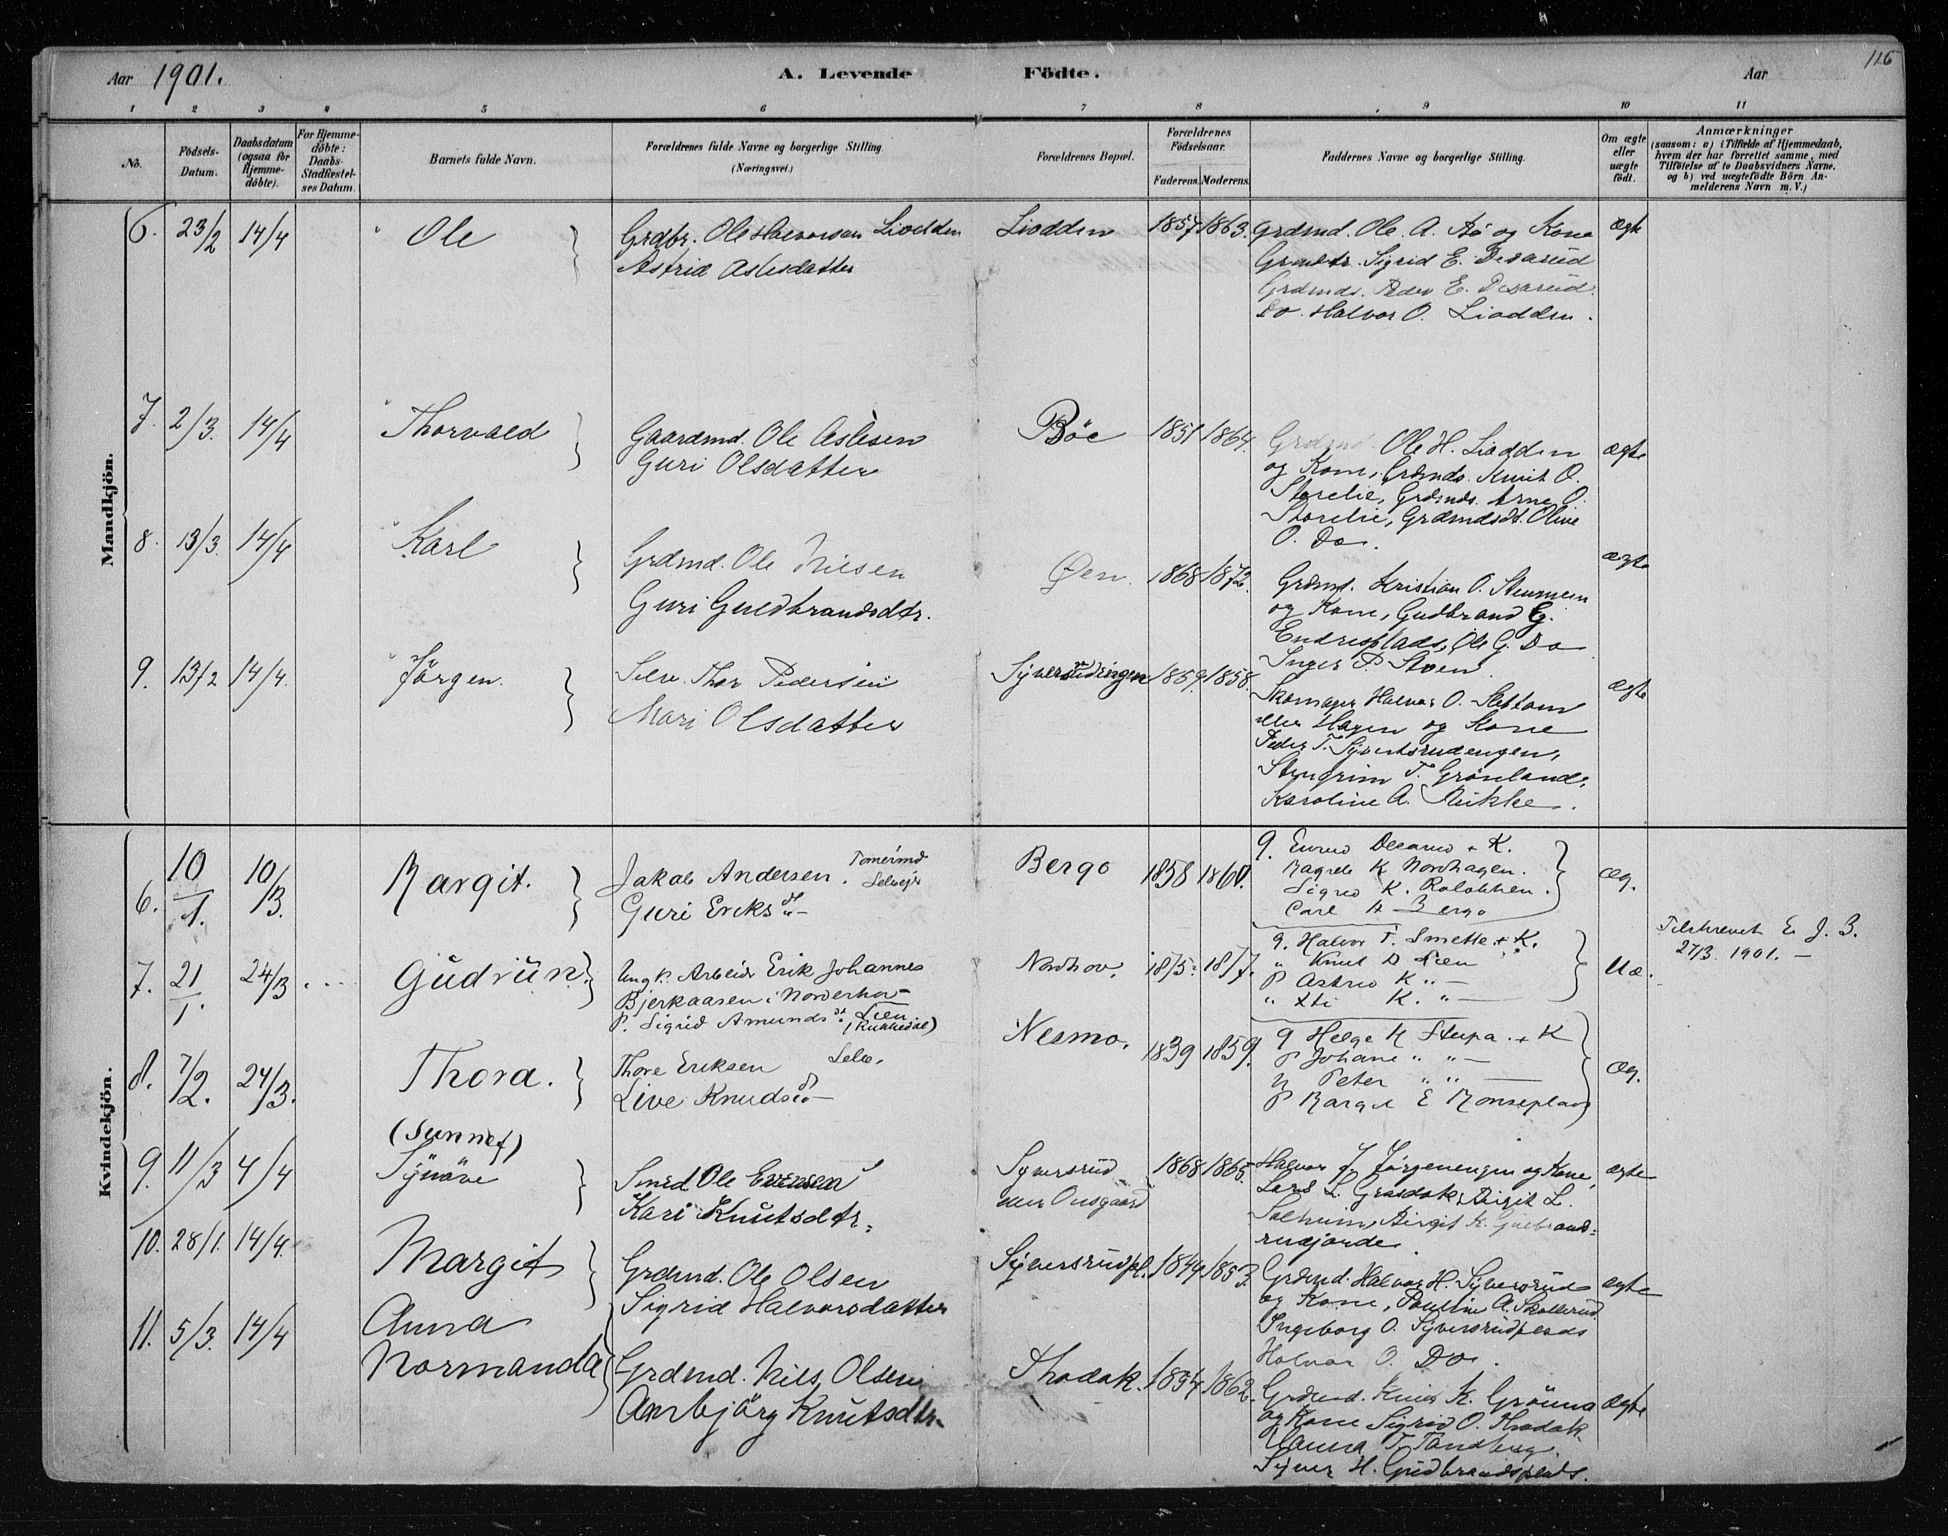 Aar 1901. A. Levende Födte. Aar 116
1 2 3 4 5 6 7 8 9 10 11
No. Födsels-Datum. Daabsdatum (ogsaa for Hjemme-döbte). For Hjemme-döbte: Daabs-Stadfæstel-ses Datum. Barnets fulde Navn. Forældrenes fulde Navne og borgerlige Stilling. (Næringsvei.) Forældrenes Bopæl. Forældrenes Födselsaar. Faderens. Moderens. Faddernes Navne og borgerlige Stilling. Om ægte eller uægte födt. Anmærkninger (saasom: a) i Tilfælde af Hjemmedaab, hvem der har forrettet samme, med Tilföielse af to Daabsvidners Navne, og b) ved uægtefödte Börn Anmelderens Navn m. V.)
Mandkjön.
6. 23/2 14/4 Ole Grdbr. Ole Halvorsen Liodden Liodden 1857 1863. Grdmd. Ole A. Aö og Kone ægte
Astrid Aslesdatter Sigrid E. Desarud
Grdmds. Peder E. Desarud.
Do. Halvor O. Liodden.
7. 2/3. 14/4 Thorvald Gaardmd. Ole Aslesen Böe 1851 1864. Grdmd. Ole H. Liodden ægte
Guri Olsdatter og Kone, Grdmds. Knut O.
Storelie, Grdmds. Arne O.
Storelie, Grdmdsdt. Olive
O. Do.
8. 13/3. 14/4 Karl Grdmd. Ole Nilsen Øen. 1868 1872. Grdmd. Kristian O. ægte
Guri Guldbrandsdtr. og Kone, Gudbrand G.
Endresplads, Ole G. Do
Inger P. Stoen
9. 13/2 14/4. Jörgen. Selv. Thor Pedersen 1859. 1858. Skomager Halvor O. ægte
Mari Olsdatter eller Hagen og Kone
Peder T. Syverstrudengen,
Stengrim T. Grönland,
Karoline A. Rukke.
Kvindekjön.
6. 10/1. 10/3. Margit. Jakob Andersen. Selvejr Bergo 1858 1860. g. Desarud + K. Æg.
Guri Eriksdt Ragnele K Nordhagen.
Sigrid K. Roløkken.
Carl A Bergo
7. 21/1. 24/3 Gudrun. Ungk. Arbeidr Erik Johannes Nordhov. 1875. 1877. g. Halvor T. Smette + K. Uæ. Tilskrevet E. J. B.
Bjerkaasen i Norderhov " Knut D Lien 27/3. 1901. —
P. Sigrid Amundsdt Lien P Astrid K " —
(Rukkedal) " K. " —
8. 7/2. 24/3. Thora. Thore Eriksen Selv. Nesmo. 1839 1859. g Helge H Stupa. + K Æg.
Live Knudsdt — P Johane " " —
Y Peter " " —
P Margit E Monseplads
9. 11/3 4/4 (Sunnef) Synöve Smed Ole Evensen Syversrud 1868 1865. Halvor J. Jörgenengen og Kone, ægte
Kari Knutsdtr. eller Lars L. Grasdok, Birgit L.
Solheim, Birgit K. Gulbrands=
rudjorde.
10. 28/1. 14/4. Margit Grdmd. Ole Olsen Syversrudpl. 1849 1853. Grdmd. Halvor H. Syversrud ægte
Sigrid Halvorsdatter og Kone, Pauline A. Skollerud
Ingeborg O. Syversrudplads
Halvor O. Do.
11. 5/3. 14/4 Anna Normanda Grdmd. Nils Olsen Thodok. 1854 1862. Grdmd. K. Gröuna ægte
Ambjörg Knutsdtr. og Kone Sigrid O. Thodok
Hanna T. Tandberg.
Syver H. Gudbrandsplads.